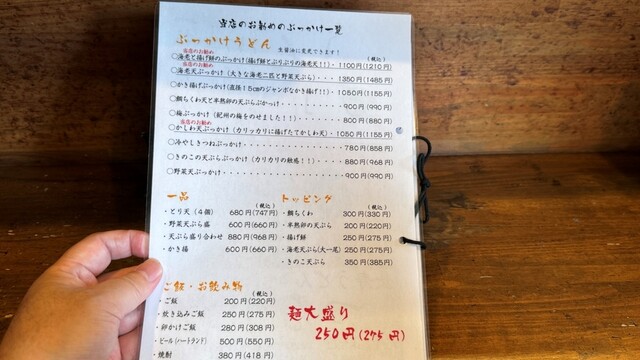 当店のお勧めのぶっかけ一覧
ぶっかけうどん
生醤油に変更できます!
(税込)
当店のお勧め
○海老と揚げ餅のぶっかけ(揚げ餅とぷりぷりの海老天!!)・1100円(1210円)
当店のお勧め
○海老天ぶっかけ(大きな海老二匹と野菜天ぷら)・・・1350円(1485円)
○かき揚げぶっかけ(直径15cmのジャンボなかき揚げ!!)・1050円(1155円)
○鯛ちくわ天と半熟卵の天ぷらぶかっけ・・・・・・・900円(990円)
○梅ぶっかけ(紀州の梅をのせました!!)・・・・・・800円(880円)
当店のお勧め
○かしわ天ぶっかけ(カリッカリに揚げたてかしわ天)・1050円(1155円)
○冷やしきつねぶっかけ・・・・・・・・・・・・・780円(858円)
○きのこの天ぷらぶっかけ(カリカリの触感!!)・・・・880円(968円)
○野菜天ぶっかけ・・・・・・・・・・・・・・・・900円(990円)
一品
(税込)
・とり天(4個) 680円(747円)
・野菜天ぷら盛 600円(660円)
・天ぷら盛り合わせ 880円(968円)
・かき揚 600円(660円)
トッピング
(税込)
・鯛ちくわ 300円(330円)
・半熟卵の天ぷら 200円(220円)
・揚げ餅 250円(275円)
・海老天ぷら(大一尾) 250円(275円)
・きのこ天ぷら 350円(385円)
ご飯・お飲み物
(税込)
・ご飯 200円(220円)
・炊き込みご飯 250円(275円)
・卵かけご飯 280円(308円)
・ビール(ハートランド) 500円(550円)
・焼酎 380円(418円)
麺大盛り
250円(275円)